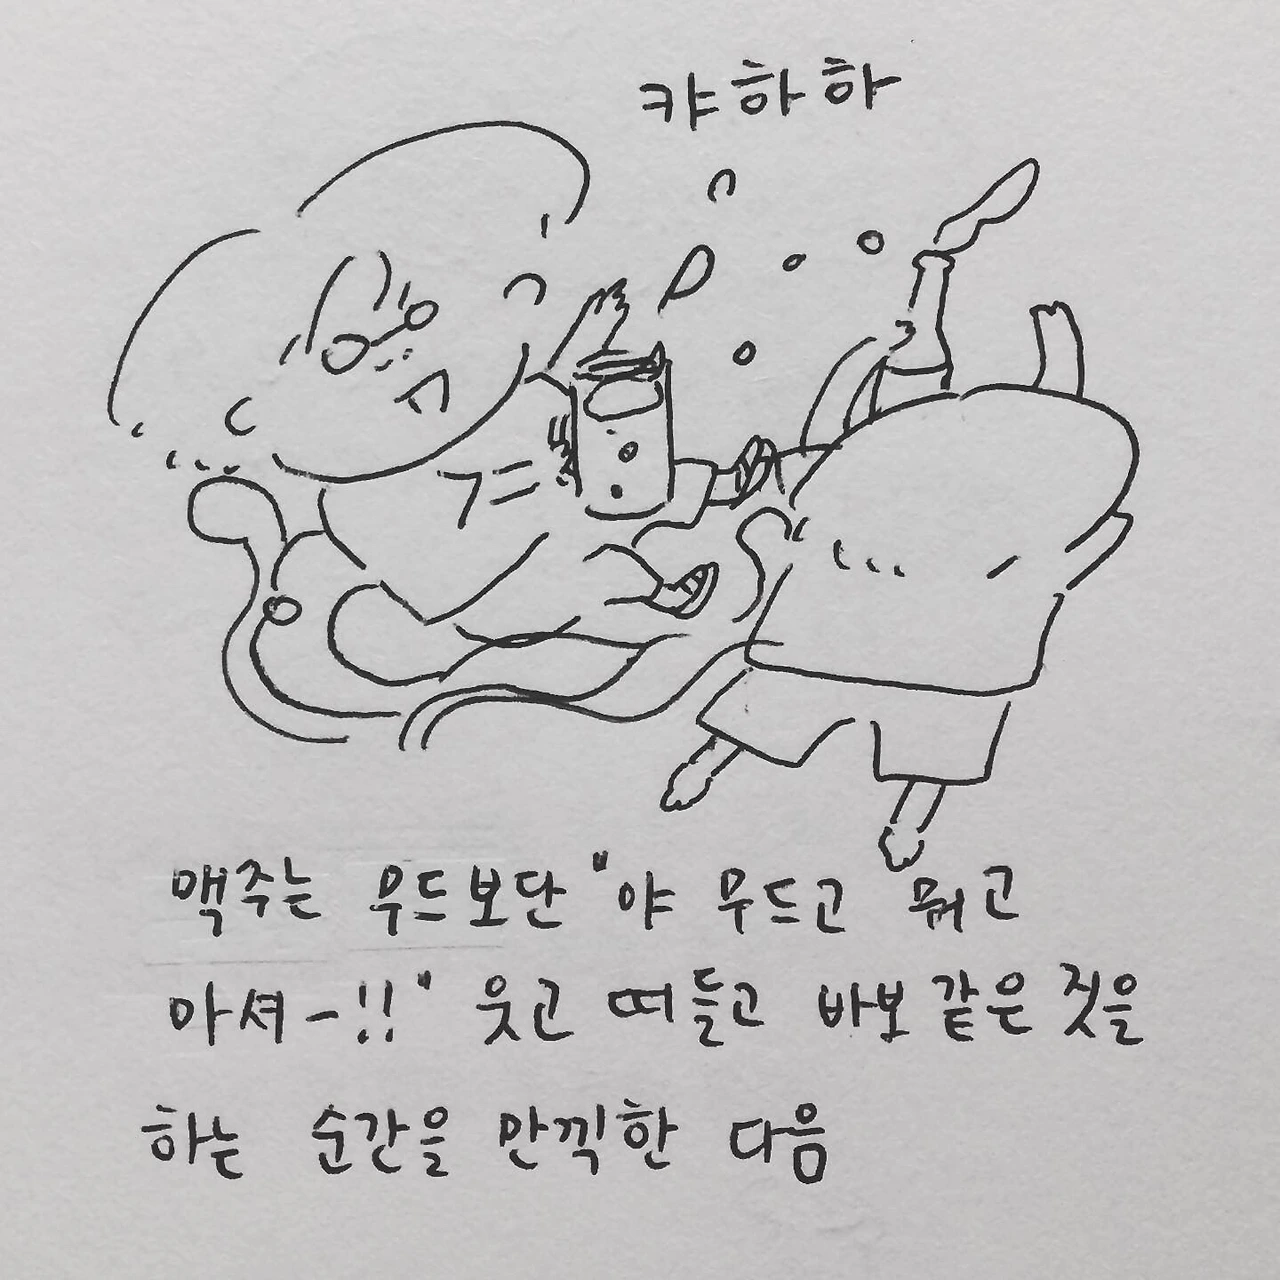 캬하하
맥주는 무드보단 "야 무드고 뭐고
마셔-!!" 웃고 떠들고 바보 같은 짓을
하는 순간을 만끽한 다음